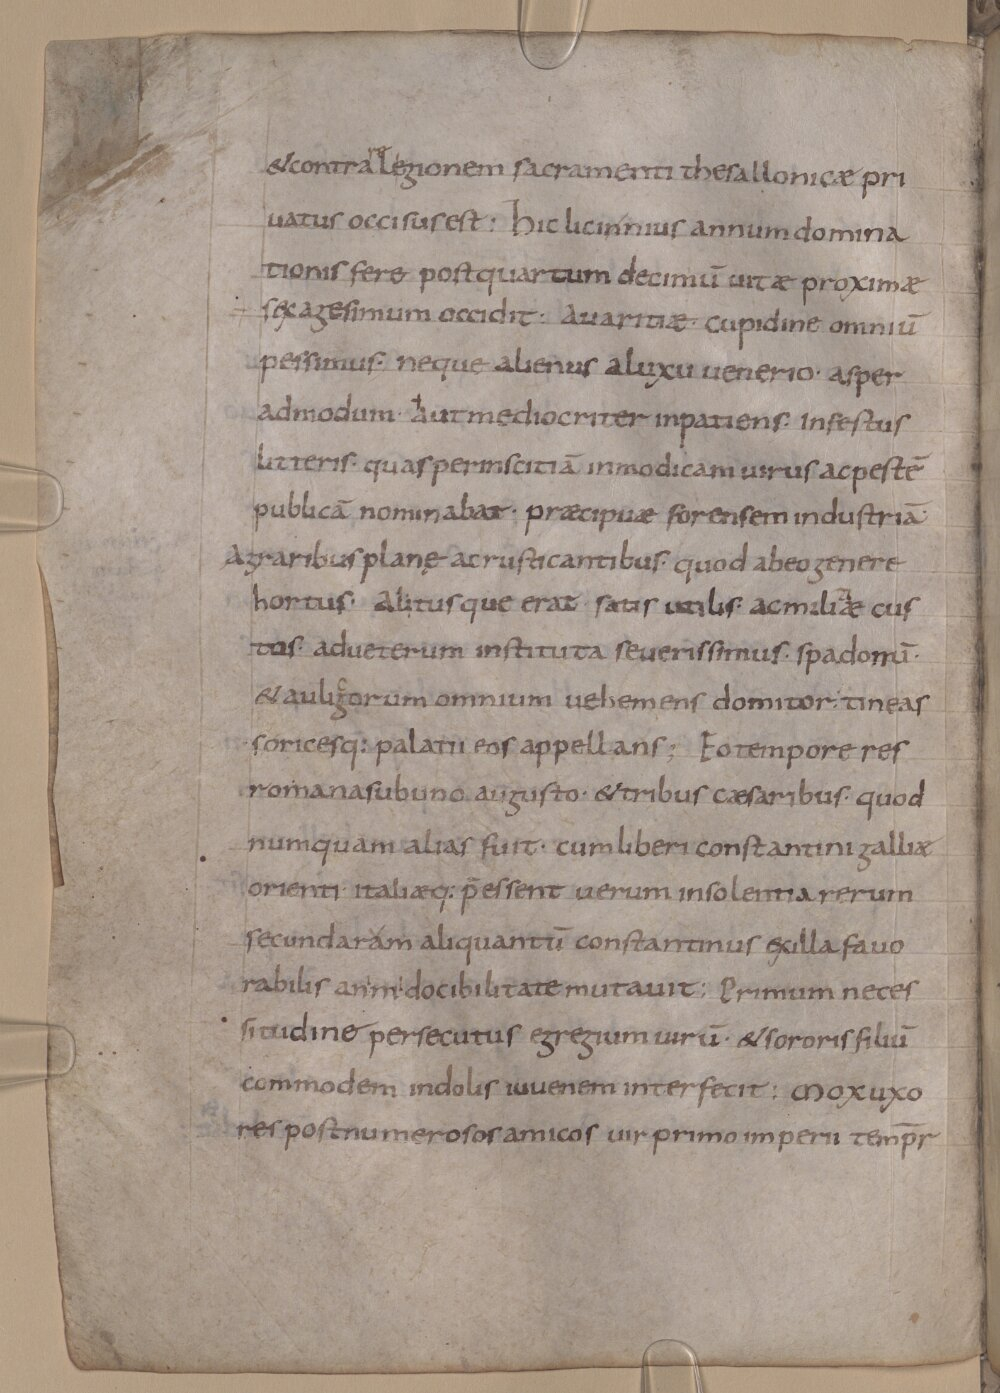 &contra legionem sacramenti thesallonicæ pri
uatus occisus est: Hic licinnius annum domina
tionis fere post quartum decimū uitæ proximæ
sexagesimum occidit. Auaritiæ cupidine omniū
pessimus. neque alienus aluxu uenerio. asper
admodum. Aut mediocriter inpatiens. Infestus
litteris. quas per inscitiā inmodicam uirus ac pestē
publicā nominabat. præcipuæ forensem industriā.
Agraribus plane ac rusticantibus. quod abeo genere
hortus. Alitusque erat. satis utilis. ac miliæ cus
tos. ad ueterum instituta seuerissimus. spadonū.
& auligorum omnium uehemens domitor. tineas
soricesq: palatii eos appellans; Eo tempore res
romana sub uno augusto. & tribus cæsaribus. quod
numquam alias fuit. cum liberi constantini galliæ
orienti italiæq: p̄essent uerum insolentia rerum
secundaram aliquantū constantinus ex illa fauo
rabilis animi docibilitate mutauit; Primum neces
situdine persecutus egregium uirū. & sororis filiū
commodem indolis iuuenem interfecit; Mox uxo
res post numerosos amicos uir primo imperii temp̄r